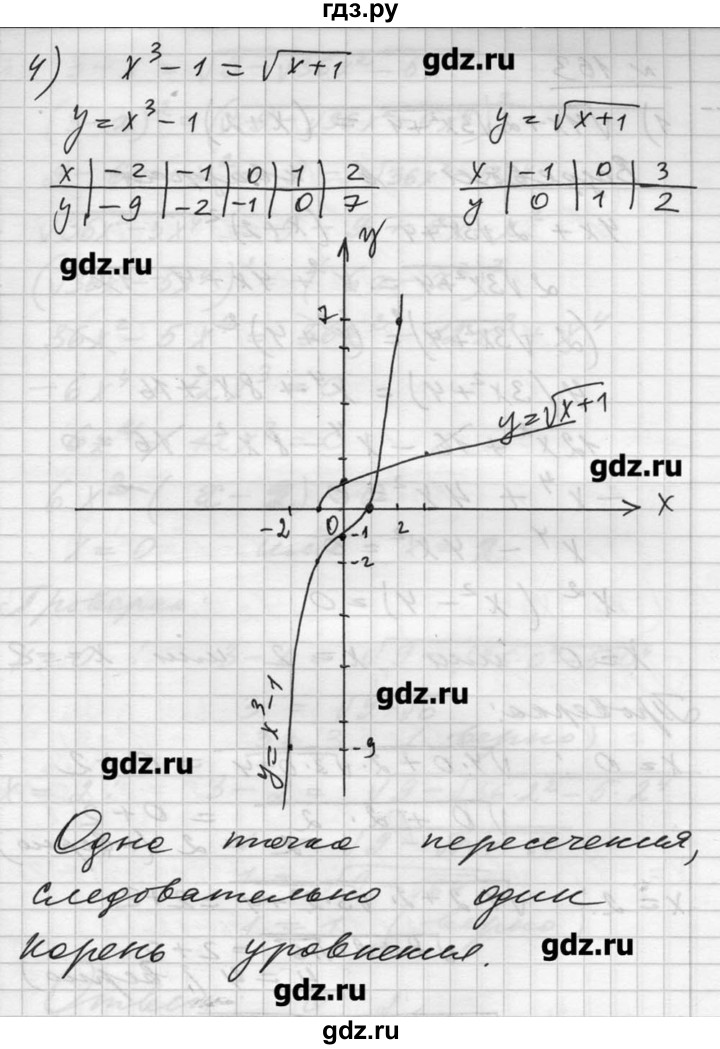 гдз.ру
gdz.ru
4) x³ - 1 = √(x+1)
y = x³ - 1 y = √(x+1)
x | -2 | -1 | 0 | 1 | 2 x | -1 | 0 | 3
y | -9 | -2 | -1 | 0 | 7 y | 0 | 1 | 2
gdz.ru
y
7
y = √(x+1)
gdz.ru
-2 0 -1 2 x
-2
gdz.ru
y = x³ - 1
-9
gdz.ru
Одна точка пересечения,
следовательно один
корень уровнения.
gdz.ru
gdz.ru
gdz.ru